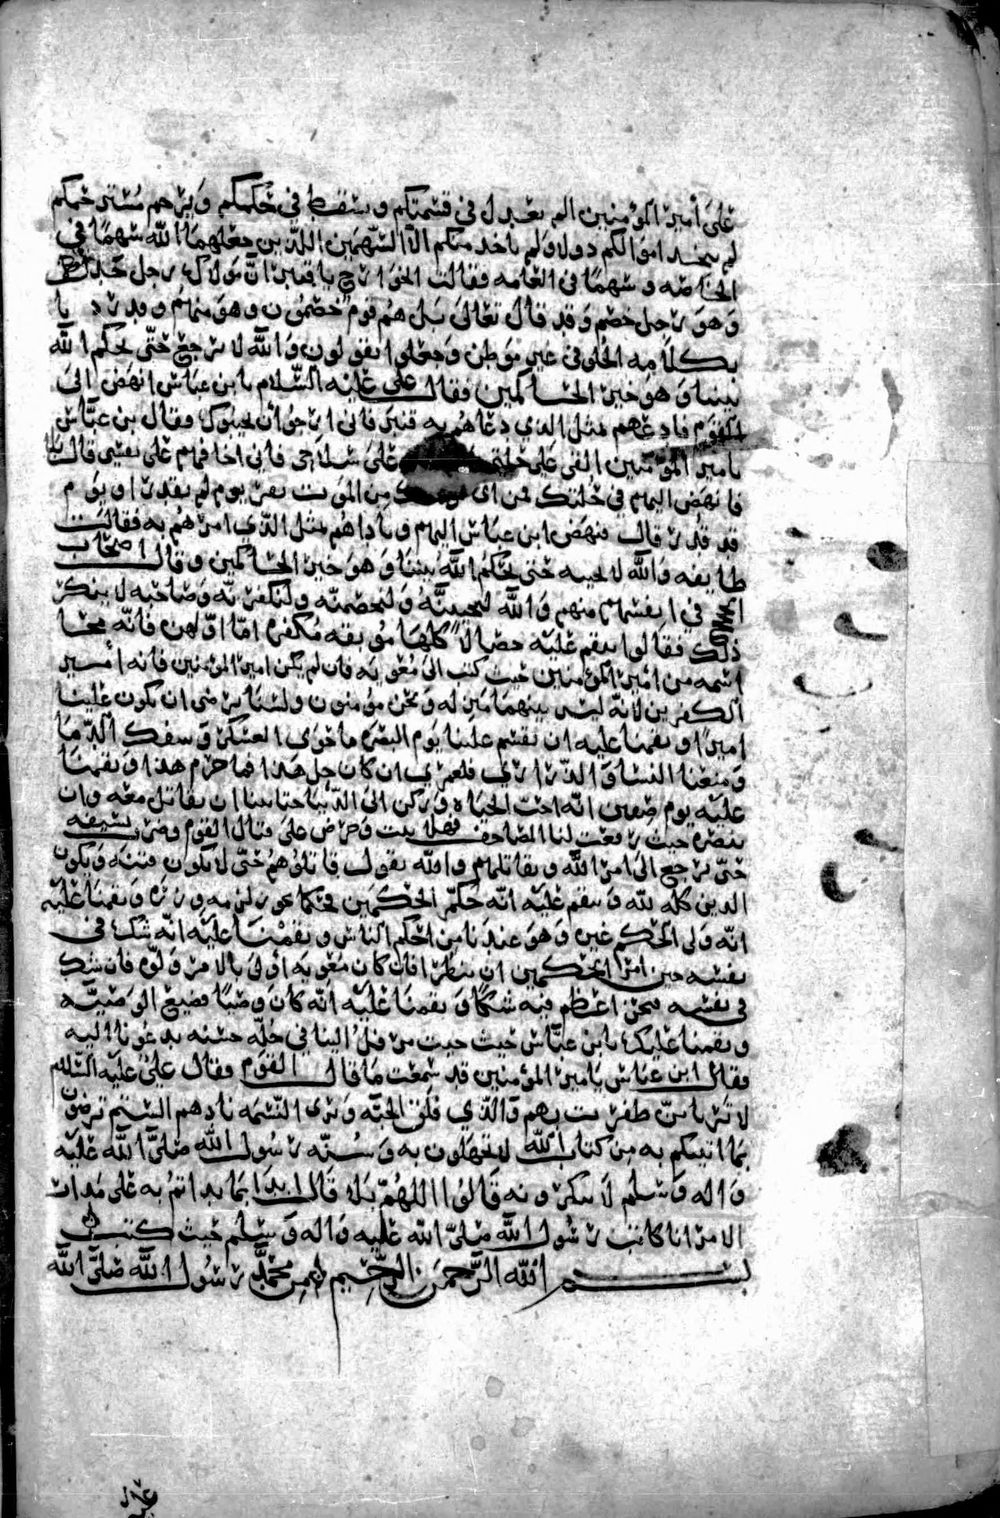 على أمير المؤمنين الم يعدل في قسمتكم ويقسط في حكمكم ويرحم مسترحمكم
لم يتخذ اموالكم دولا ولم ياخذ منكم الا السهمين اللذين جعلهما الله سهما في
الخاصه وسهما في العامه فقالت الخوارج يا قنبر ان مولاك رجل جدل
وهو رجل خصم وقد قال تعالى بل هم قوم خصمون وهو منهم وقد رد يا
بكلامه الحلو في غير موطن وجعلوا يقولون والله لا نرجع حتى يحكم الله
بيننا وهو خير الحاكمين فقال على عليه السلام يا بن عباس انهض الى
القوم فادعهم بمثل الذي دعاهم به قنبر فاني ارجو أن يجيبوك فقال بن عباس
يامير المؤمنين القي علي حلتي على سلاحى فاني اخافهم على نفسي قال بلى
فانهض اليهم في حلتك فمن اى من الموت تفر يوم لم يقدر او يوم
قد قدر قال فنهض ابن عباس اليهم وناداهم بمثل الذي امرهم به فقالت
طايفه والله لا نجيبه حتى يحكم الله بيننا وهو خير الحاكمين وقال اصحاب
الحجج في انفسهم منهم والله لنجيبنه ولنخصمنه ولنكفرنه وصاحبه لا ينكر
ذلك فقالوا ننقم عليه خصالا كلها موبقه مكفره اما اولهن فانه محا
اسمه من امير المؤمنين حيث كتب الى معويه فان لم يكن امير المؤمنين فانه امير
الكفرين لانه ليس بينهما منزله ونحن مؤمنون ولسنا نرضى ان يكون علينا
اميرا ونقمنا عليه ان يقسم علينا يوم البصره ما حوى العسكر وسفك الدما
ومنعنا النسا والذراري فلعمري ان كان حل هذا فما حرم هذا ونقمنا
عليه يوم صفين انه احب الحياه وركن الى الدنيا حتا منعنا ان نقاتل معه وان
ننصره حيث رفعت لنا المصاحف فهلا ثبت وحرض على قتال القوم وضرب بسيفه
حتى نرجع الى امر الله ونقاتلهم والله يقول قاتلوهم حتى لا تكون فتنه ويكون
الدين كله لله وننقم عليه انه حكم الحكمين فحكما بجور لزمه وزره ونقمنا عليه
انه ولى الحكم غيره وهو عندنا من احكم الناس ونقمنا عليه انه شك في
نفسه حين امر الحكمين ان ينظرا فان كان معويه أولى بالامر ولوه فان شك
في نفسه فنحن اعظم فيه شكا ونقمنا عليه انه كان وصيا فضيع الوصيه
ونقمنا عليك يا بن عباس حيث جيت من قبل الينا في حله حسنه تدعونا اليه
فقال ابن عباس يامير المؤمنين قد سمعت ما قال القوم وقال علي عليه السلام
لا ترتابن ظفرت بهم والذي فلق الحبه وبرى النسمه نادهم الستم ترضون
بما اتيتكم به من كتاب الله لا تجهلون به وسنه رسول الله صلى الله عليه
واله وسلم لا تنكرونه قالوا اللهم بلا قال ابدا بما بداتم به علي مدار
الامر انا كاتب رسول الله صلى الله عليه واله وسلم حيث كتب
بسم الله الرحمن الرحيم من محمد رسول الله صلى الله